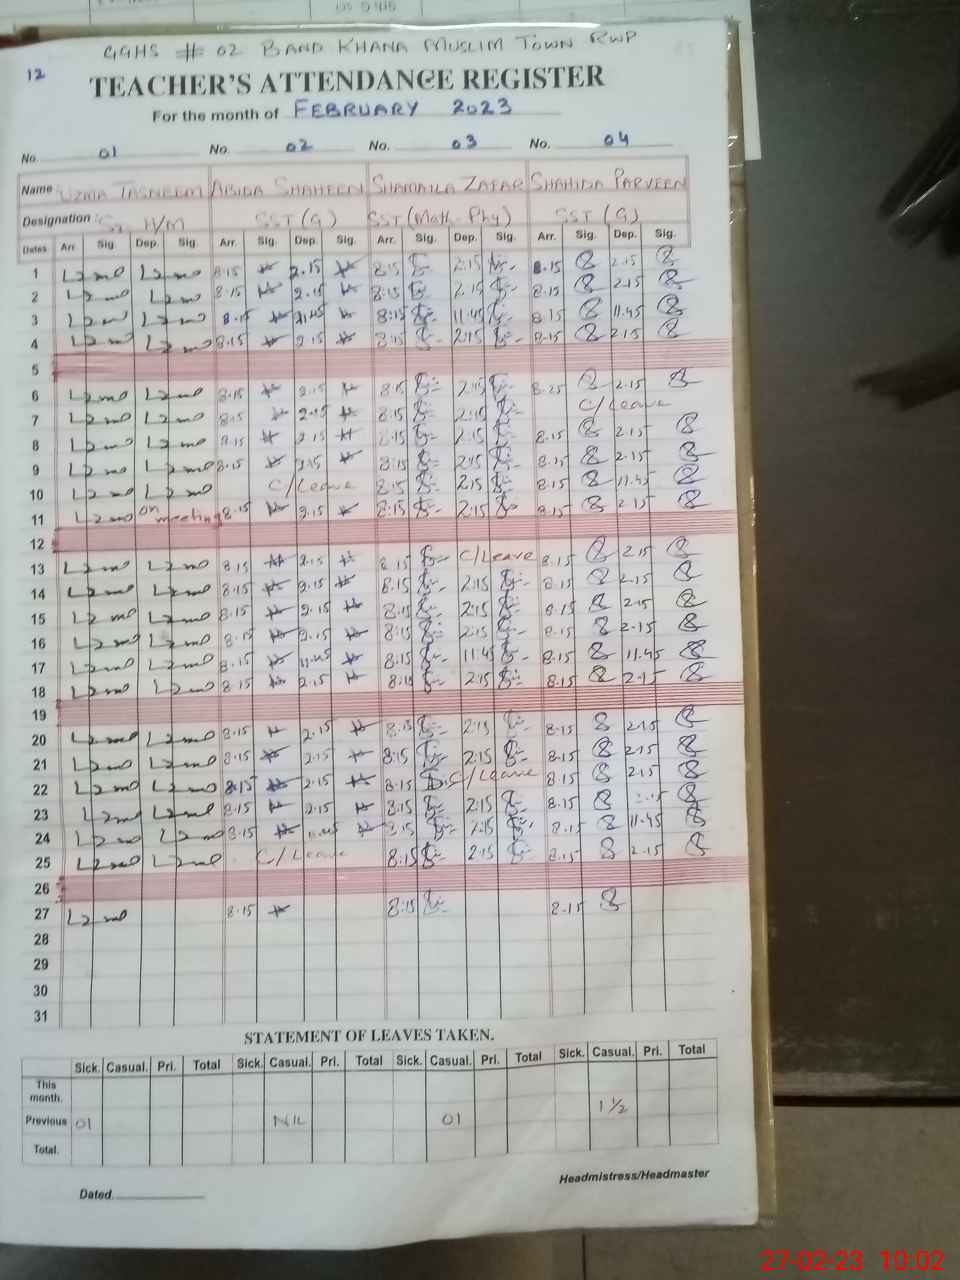 GGHS # 02 BAND KHANA MUSLIM TOWN RWP
12
TEACHER'S ATTENDANCE REGISTER
For the month of FEBRUARY 2023
No. 01 No. 02 No. 03 No. 04
Name UZMA TASNEEM ABIDA SHAHEEN SHAMAILA ZAFAR SHAHIDA PARVEEN
Designation Sr. H/M SST (G) SST (Math-Phy) SST (G)
Dates Arr. Sig. Dep. Sig. Arr. Sig. Dep. Sig. Arr. Sig. Dep. Sig. Arr. Sig. Dep. Sig.
1 8.15 2.15 8:15 2:15 8.15 2.15
2 8.15 2.15 8:15 2.15 8.15 2.15
3 8.15 11.45 8:15 11:45 8.15 11.45
4 8.15 2.15 8:15 2:15 8.15 2.15
5
6 8.15 2.15 8:15 2:15 8.25 2.15
7 8.15 2.15 8:15 2:15 C/Leave
8 8.15 2.15 8:15 2:15 8.15 2.15
9 8.15 2.15 8:15 2:15 8.15 2.15
10 C/Leave 8:15 2:15 8.15 11.45
11 on meeting 8.15 2.15 8:15 2:15 8.15 2.15
12
13 8.15 2.15 8.15 C/Leave 8.15 2.15
14 8.15 2.15 8.15 2:15 8.15 2.15
15 8.15 2.15 8:15 2:15 8.15 2.15
16 8.15 2.15 8:15 2:15 8.15 2.15
17 8.15 11.45 8:15 11:45 8.15 11.45
18 8.15 2.15 8:15 2:15 8.15 2.15
19
20 8.15 2.15 8:15 2:15 8.15 2.15
21 8.15 2.15 8:15 2:15 8.15 2.15
22 8.15 2.15 8.15 C/Leave 8.15 2.15
23 8.15 2.15 8:15 2:15 8.15 2.15
24 8.15 11.45 8:15 2:15 8.15 11.45
25 C/Leave 8:15 2:15 8.15 2.15
26
27 8.15 8:15 8.15
28
29
30
31
STATEMENT OF LEAVES TAKEN.
Sick. Casual. Pri. Total Sick. Casual. Pri. Total Sick. Casual. Pri. Total Sick. Casual. Pri. Total
This month.
Previous 01 NIL 01 1 1/2
Total.
Dated. Headmistress/Headmaster
27-02-23 10:02